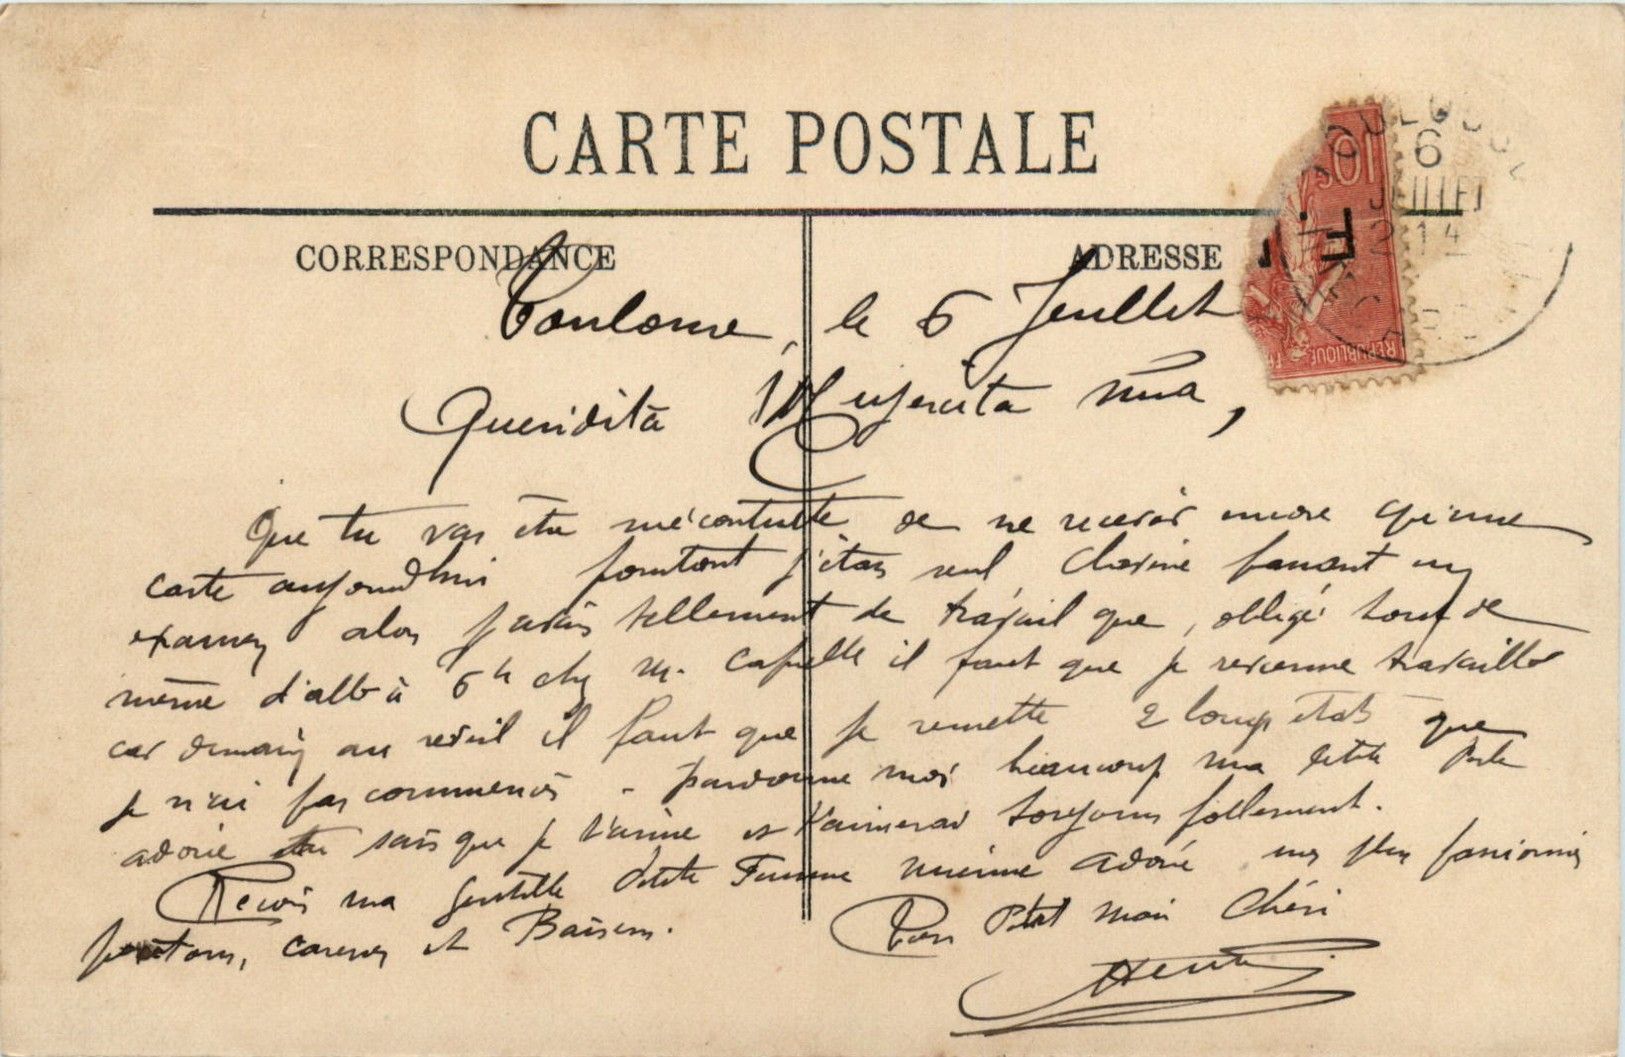 CARTE POSTALE
CORRESPONDANCE
ADRESSE
10c
F
RÉPUBLIQUE
6
JUILLET
14
Toulouse, le 6 Juillet
Queridita Mujercita mia,
Que tu vas être mécontente de ne recevoir encore qu'une
carte aujourd'hui pourtant j'étais seul, faisant un
examen alors j'avais tellement de travail que, obligé tout de
même d'aller à 6h chez M. Capelle il faut que je revienne travailler
car demain au réveil il faut que je remette 2 états que
je n'ai pas commencés - pardonne moi beaucoup ma petite
adorée tu sais que je t'aime et t'aimerai toujours follement.
Reçois ma gentille petite Femme mienne adorée mes plus passionnés
caresses et Baisers.
Ton Petit Mari Chéri
Henri